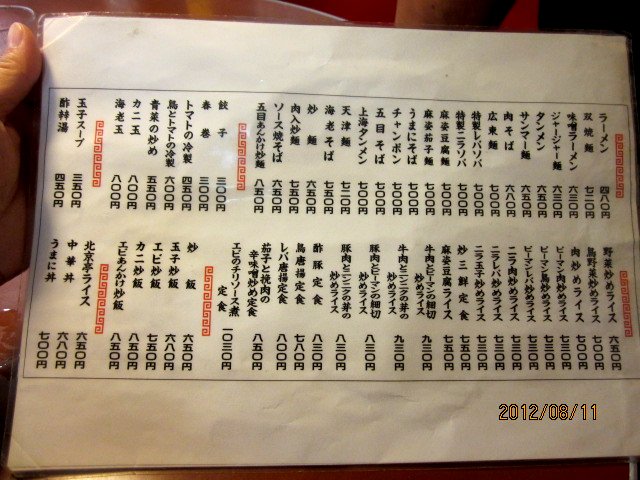 ラーメン 四八〇円
双焼麺 七二〇円
味噌ラーメン 六三〇円
ジャージャー麺 六三〇円
タンメン 六五〇円
サンマー麺 六五〇円
肉そば 六八〇円
広東麺 七五〇円
特製レバソバ 七五〇円
特製ニラソバ 七五〇円
麻姿豆腐麺 七五〇円
麻姿茄子麺 七五〇円
うまにそば 七五〇円
チャンポン 七五〇円
五目そば 七五〇円
上海タンメン 七五〇円
天津麺 七二〇円
海老そば 七五〇円
炒麺 六五〇円
肉入炒麺 七五〇円
ソース焼そば 七五〇円
五目あんかけ炒麺 八五〇円
餃子 三〇〇円
春巻 三〇〇円
トマトの冷製 四五〇円
鳥とトマトの冷製 五五〇円
青菜の炒め 五五〇円
カニ玉 八〇〇円
海老玉 八〇〇円
玉子スープ 三五〇円
酢辣湯 四五〇円
野菜炒めライス 六五〇円
鳥野菜炒めライス 七〇〇円
肉炒めライス 七〇〇円
ピーマン肉炒めライス 七五〇円
ピーマン鳥炒めライス 七五〇円
ピーマンレバ炒めライス 七五〇円
ニラ肉炒めライス 七五〇円
ニラレバ炒めライス 七五〇円
ニラ玉子炒めライス 七五〇円
炒三鮮定食
麻姿豆腐ライス 八五〇円
牛肉とピーマンの細切
炒めライス 九三〇円
牛肉とニンニクの芽の
炒めライス 九三〇円
豚肉とピーマンの細切
炒めライス 八三〇円
豚肉とニンニクの芽の
炒めライス 八三〇円
酢豚定食 八三〇円
鳥唐揚定食 七八〇円
レバ唐揚定食 七〇〇円
茄子と挽肉の
辛味噌炒め定食 八五〇円
エビのチリソース煮
定食 一〇三〇円
炒飯 六五〇円
玉子炒飯 六八〇円
エビ炒飯 七五〇円
カニ炒飯 八五〇円
エビあんかけ炒飯 八五〇円
北京亭ライス 七五〇円
中華丼 六八〇円
うまに丼 七〇〇円
2012/08/11